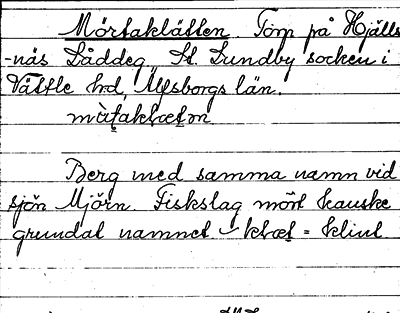 Mörtaklätten. Torp på Hjälls-
-näs Säddeg. St. Lundby socken i
Vättle hrd, Älfsborgs län.
Berg med samma namn vid
sjön Mjörn. Fiskslag mört kanske
grundat namnet - = klint